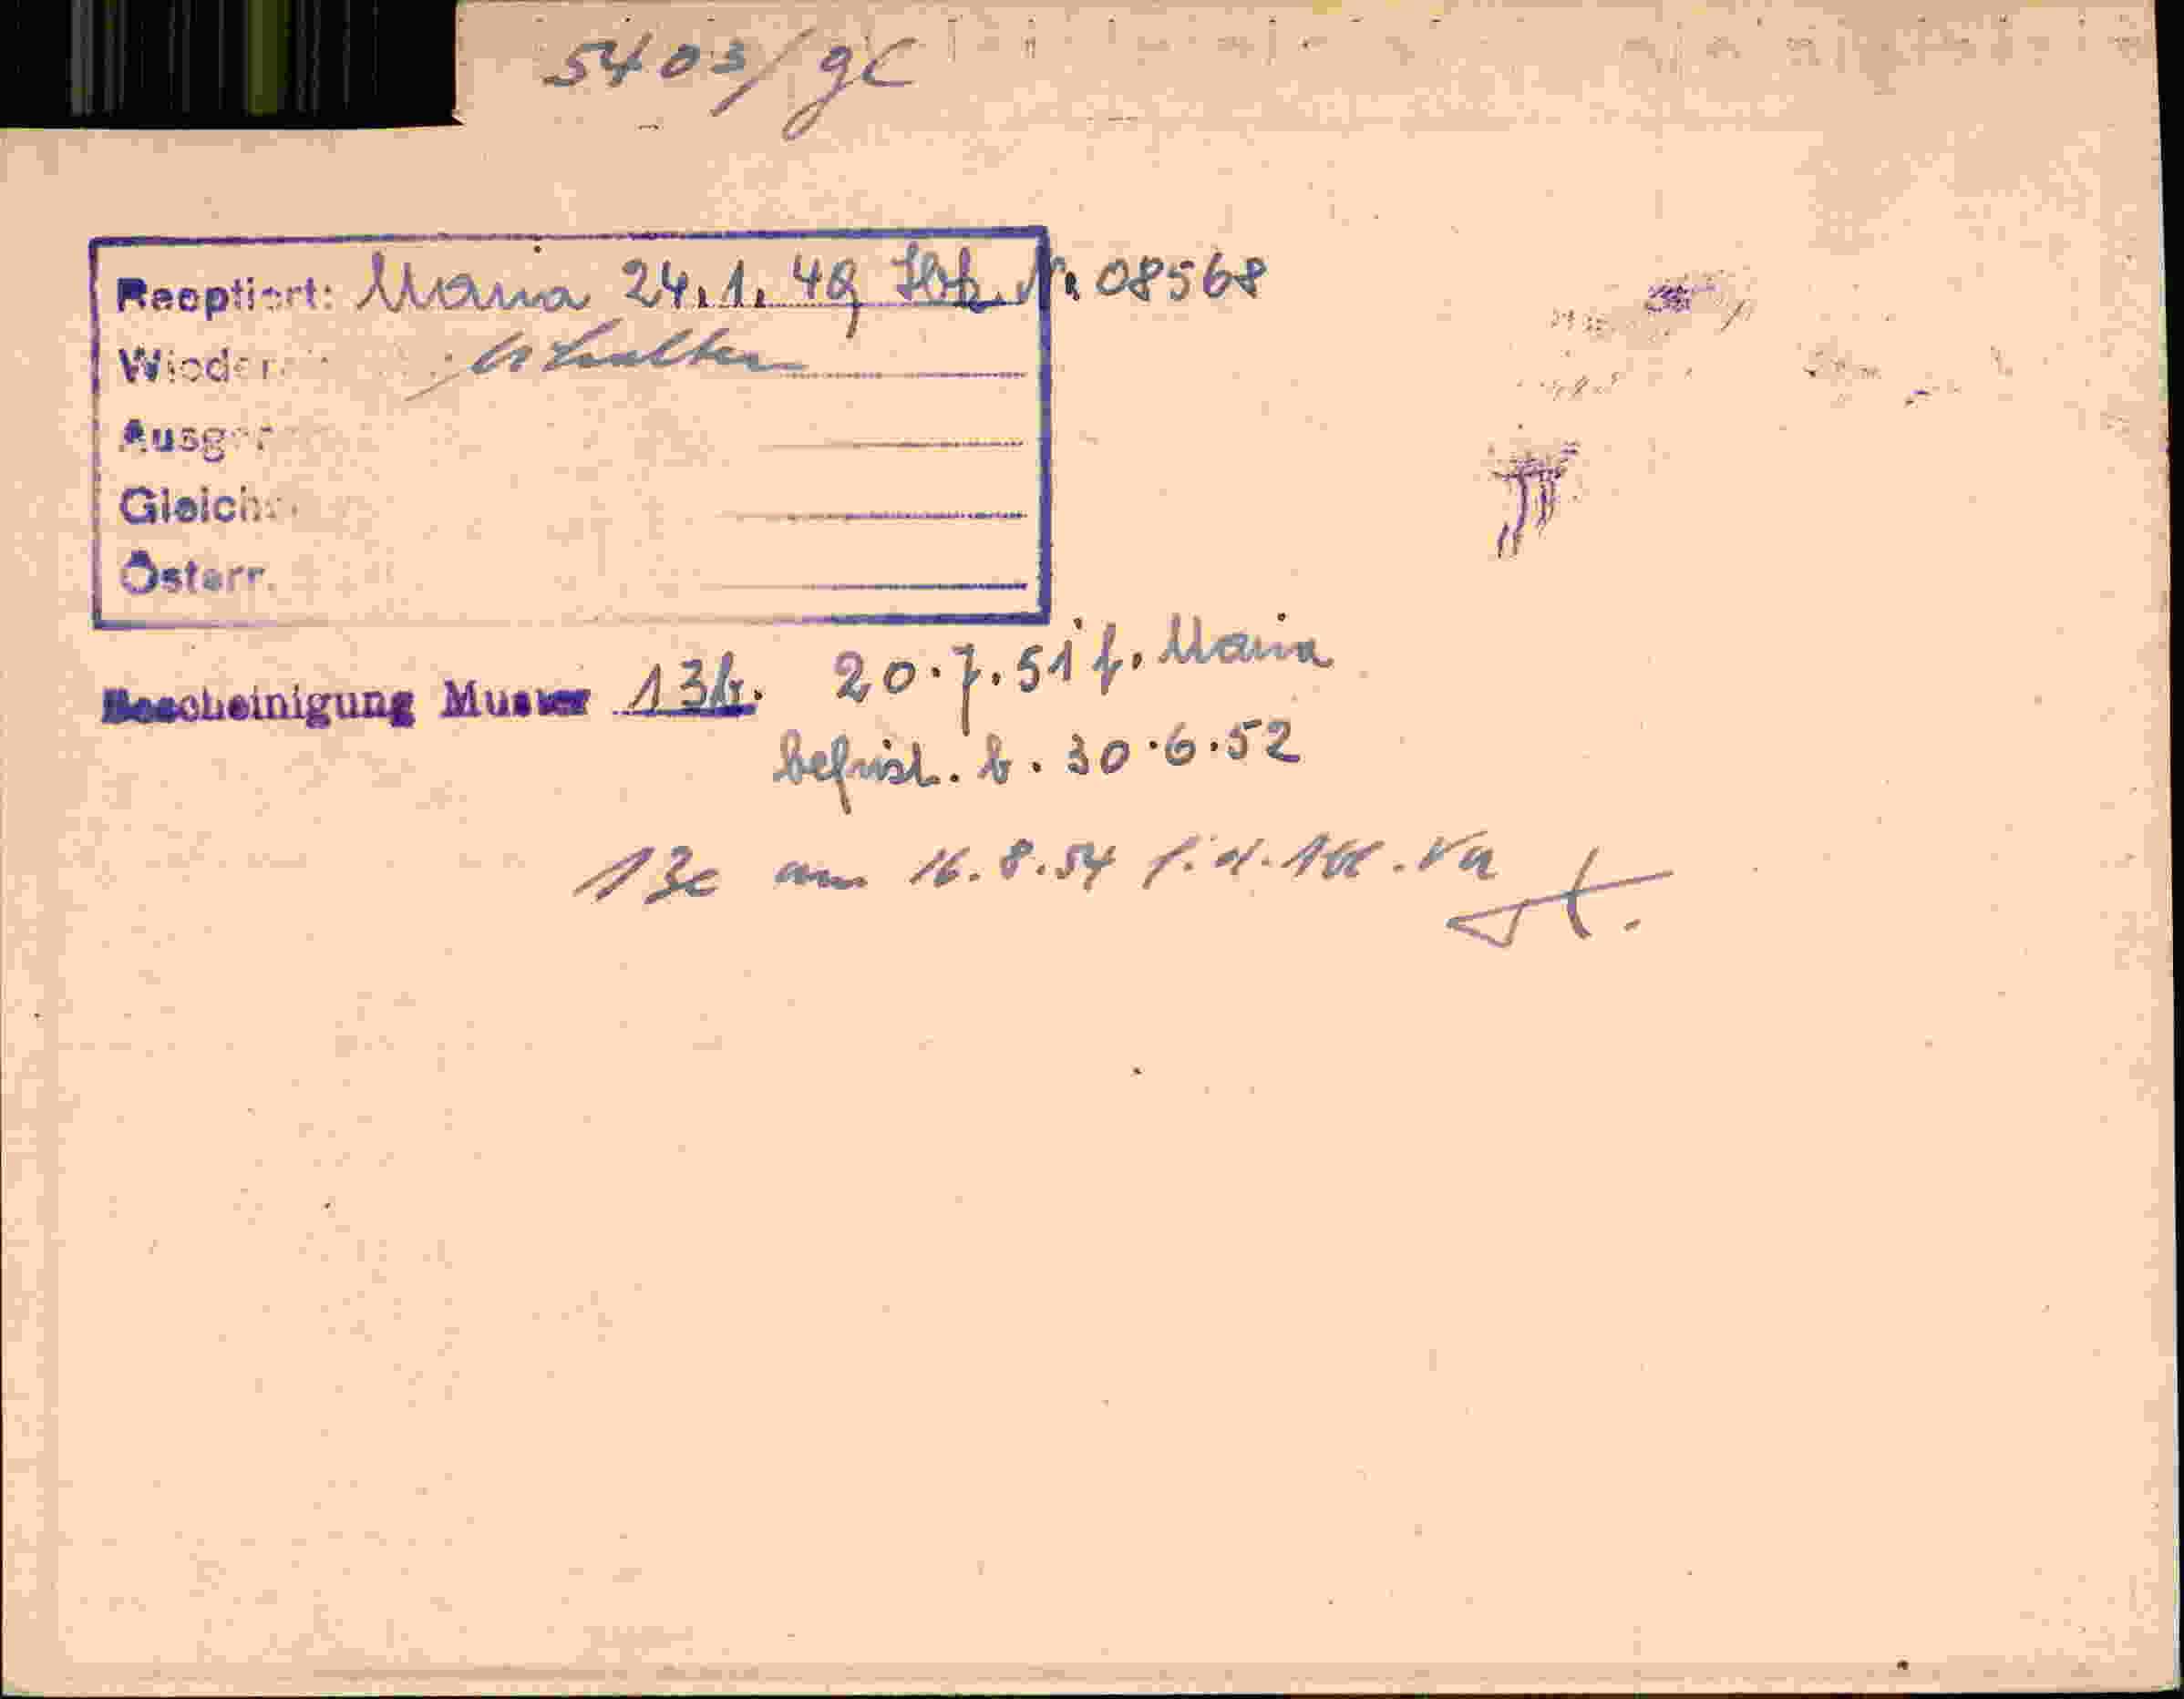 5403/gC
Reoptiert: Maria 24.1.49 Hbk. Nr. 08568
Wieder erhalten
Ausge
Gleich
Österr.
Bescheinigung Muster 13b. 20.7.51 f. Maria
befrist. b. 30.6.52
13c am 16.8.54 f. d. Abt. Va